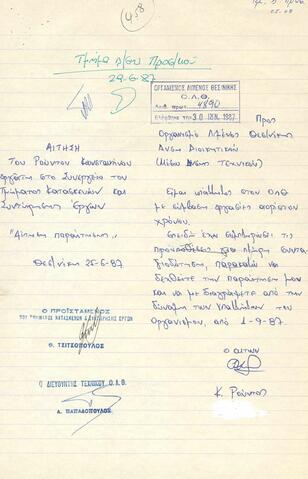 458
Τμήμα
29-6-87
ΟΡΓΑΝΙΣΜΟΣ ΛΙΜΕΝΟΣ ΘΕΣ/ΝΙΚΗΣ
Ο.Λ.Θ.
Αριθ. πρωτ. 4890
30 ΙΟΥΝ. 1987
ΑΙΤΗΣΗ
Του Ρούντου Κωνσταντίνου
εργάτη στο Συνεργείο του
Τμήματος Κατασκευών και
Συντήρησης Έργων
"Αίτηση παραίτησης"
Θεσ/νίκη 25-6-87
Ο ΠΡΟΪΣΤΑΜΕΝΟΣ
ΤΟΥ ΤΜΗΜΑΤΟΣ ΚΑΤΑΣΚΕΥΩΝ & ΣΥΝΤΗΡΗΣΗΣ ΕΡΓΩΝ
Θ. ΤΣΙΤΣΟΠΟΥΛΟΣ
Ο ΔΙΕΥΘΥΝΤΗΣ ΤΕΧΝΙΚΟΥ Ο.Λ.Θ.
Α. ΠΑΠΑΔΟΠΟΥΛΟΣ
Προς
Οργανισμό Λιμένος Θεσ/νίκης
Δ/νση Διοικητικού
(Μέσω Δ/νσεως Τεχνικού)
Είμαι υπάλληλος στον ΟΛΘ
με σύμβαση εργασίας αορίστου
χρόνου.
Επειδή έχω συμπληρώσει τις
προϋποθέσεις για πλήρη συντα-
ξιοδότηση, παρακαλώ να
δεχθείτε την παραίτησή μου
και να με διαγράψετε από την
δύναμη των υπαλλήλων του
Οργανισμού, από 1-9-87.
Ο ΑΙΤΩΝ
Κ. Ρούντος